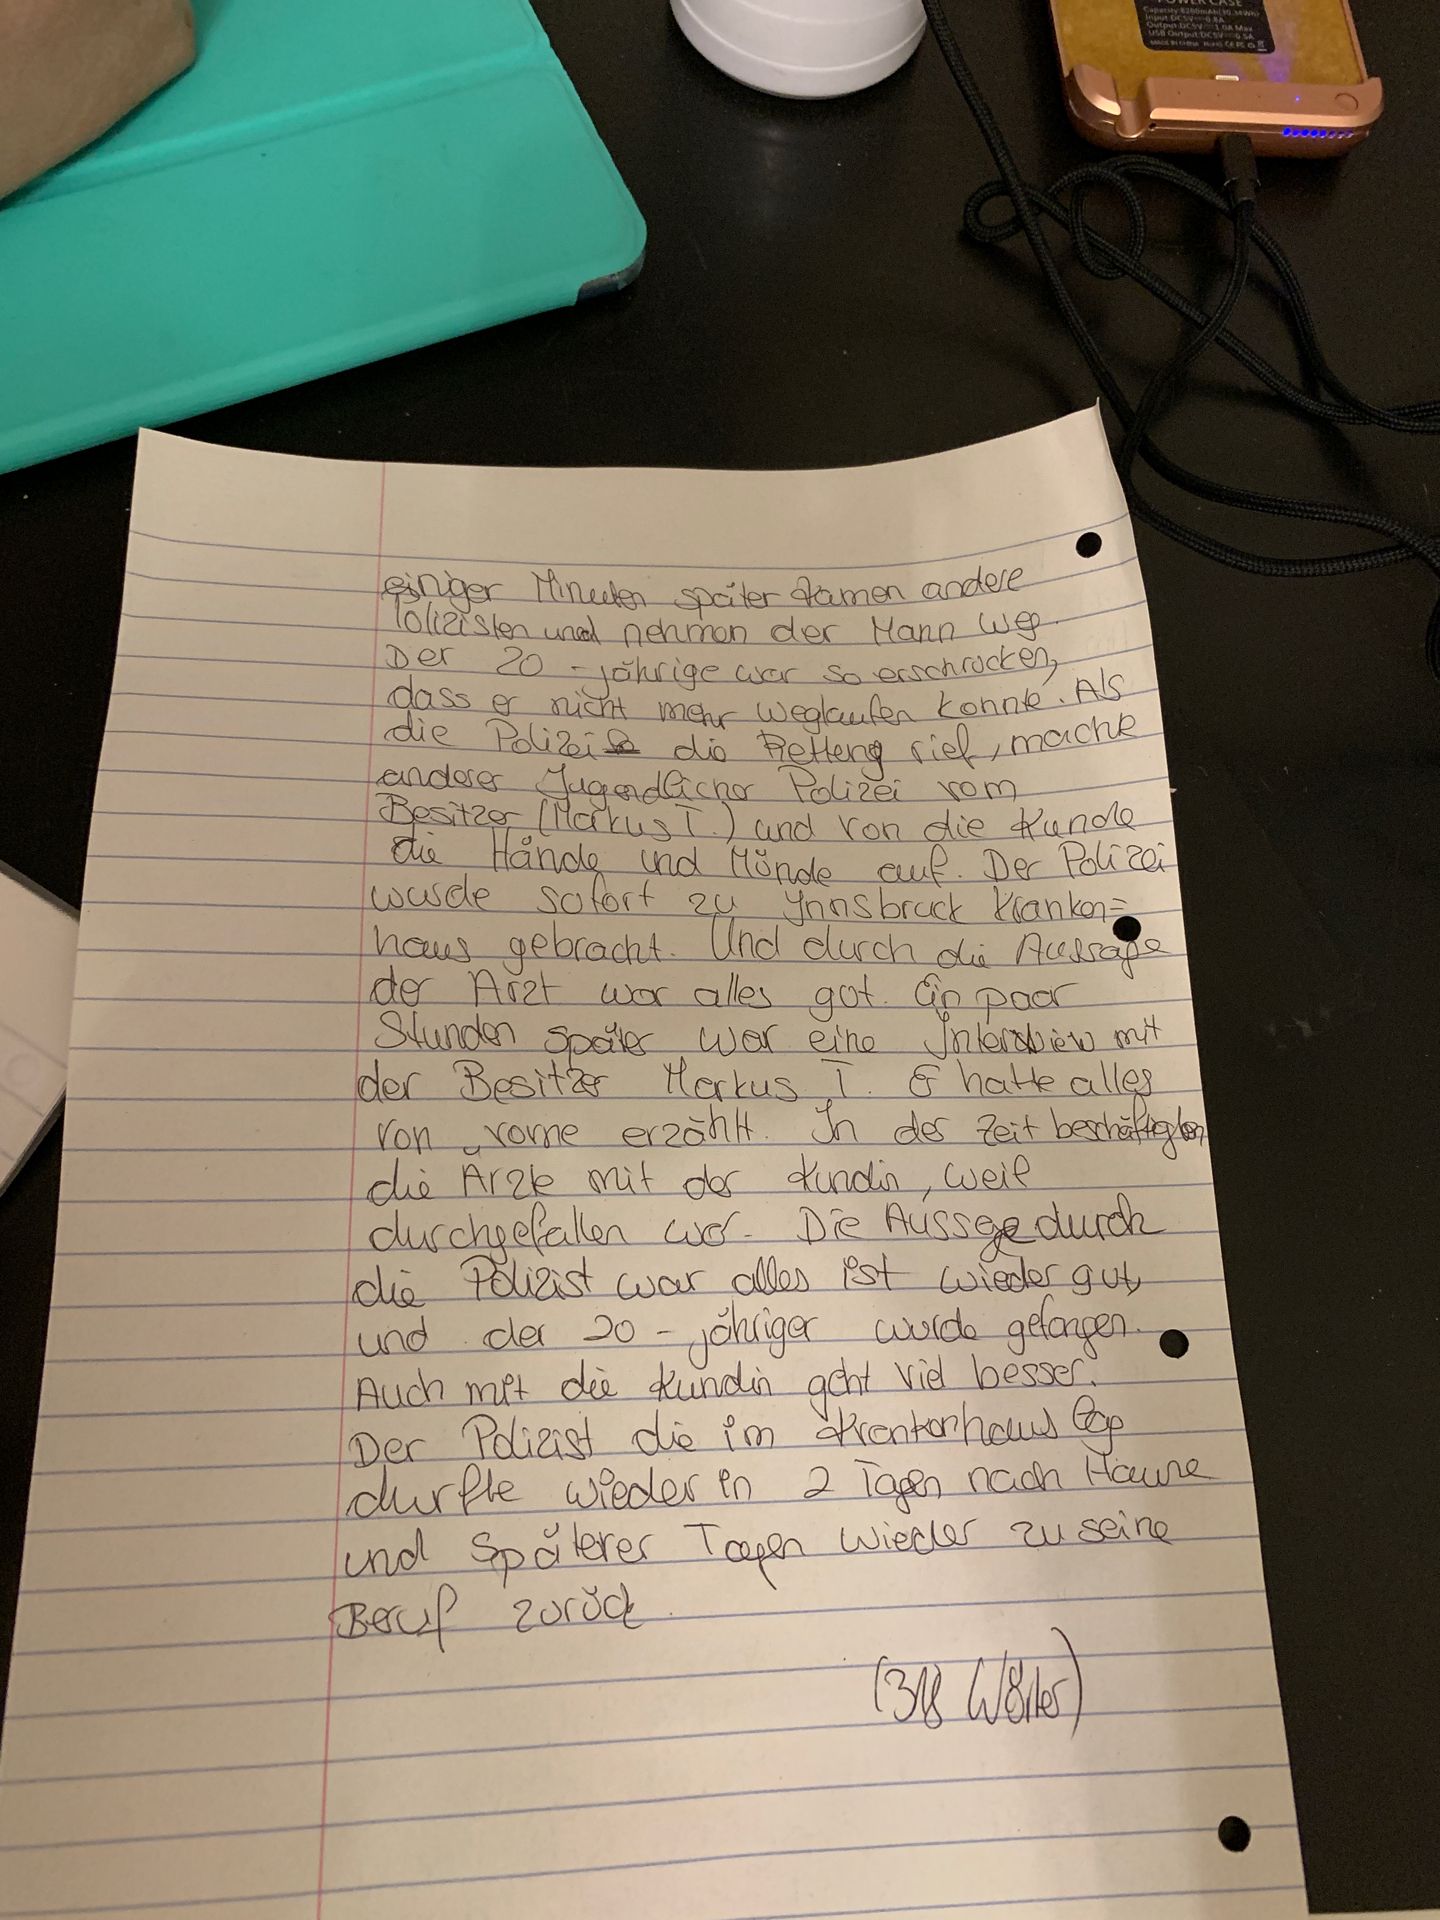 POWER CASE
Capacity:8200mAh(30.34Wh)
Input:DC5V⎓0.8A
Output:DC5V⎓1.0A Max
USB Output:DC5V⎓0.5A
MADE IN CHINA RoHS CE FC
einiger Minuten später kamen andere
Polizisten und nehmen der Mann weg.
Der 20 - jährige war so erschrocken,
dass er nicht mehr weglaufen konnte. Als
die Polizei die Rettung rief, machte
anderer Jugendlicher Polizei vom
Besitzer (Markus T.) und von die Kunde
die Hände und Münde auf. Der Polizei
wurde sofort zu Ynnsbruck Kranken=
haus gebracht. Und durch die Aussage
der Arzt war alles gut. Ein paar
Stunden später war eine Interview mit
der Besitzer Markus T. Er hatte alles
von vorne erzählt. In der Zeit beschäftigten
die Arzte mit der Kundin, weil
durchgefallen war. Die Aussage durch
die Polizist war alles ist wieder gut,
und der 20 - jähriger wurde gefangen.
Auch mit die Kundin geht viel besser.
Der Polizist die im Krankenhaus lag
durfte wieder in 2 Tagen nach Hause
und späterer Tagen wieder zu seine
Beruf zurück.
(318 Wörter)